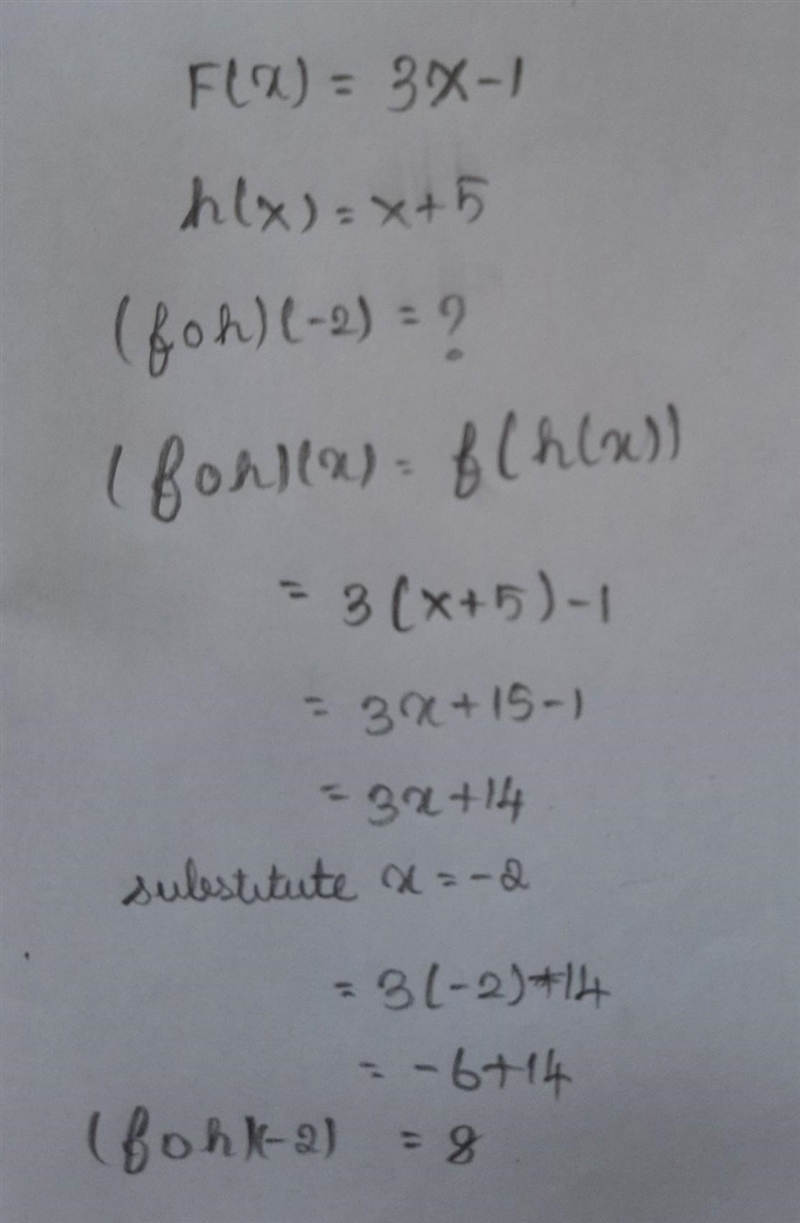 F(x) = 3x-1
h(x) = x+5
(foh)(-2) = ?
(foh)(x) = f(h(x))
= 3(x+5)-1
= 3x+15-1
= 3x+14
substitute x = -2
= 3(-2)+14
= -6+14
(foh)(-2) = 8